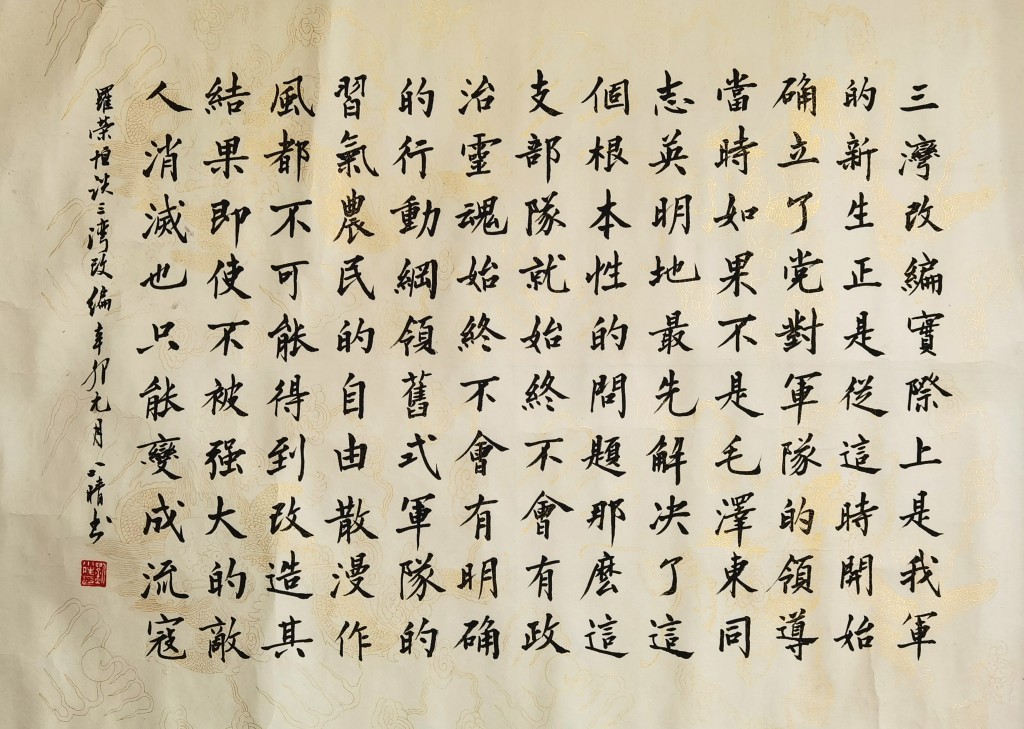 三灣改編實際上是我軍
的新生正是從這時開始
确立了党對軍隊的領導
當時如果不是毛澤東同
志英明地最先解决了這
個根本性的問題那麽這
支部隊就始終不會有政
治靈魂始終不會有明确
的行動綱領舊式軍隊的
習氣農民的自由散漫作
風都不可能得到改造其
結果即使不被强大的敵
人消滅也只能變成流寇
羅荣恒談三湾改编辛卯九月 晴书